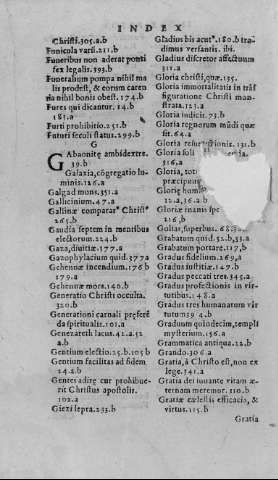 INDEX
Christi.305.a.b
Funicola varsi.211.b
Funeribus non aderat ponti
fex legalis.393.b
Funeralium pompa nihil ma
lis prodest, & eorum caren
tia nihil bonis obest.174.b
Fures qui dicantur.14.b
181.a
Furti prohibitio.251.b
Futuri seculi status.299.b
G
GAbaonitę ambidextre.
39.b
Galaxia, cõgregatio lu
minis.126.a
Galgad mons.351.a
Gallicinium.47.a
Gallinæ comparat' Christ'
265.b
Gaudia septem in mensibus
electorum.224.b
Gaza, diuitiæ.177.a
Gazophylacium quid.377.a
Gehennæ incendium.176.b
179.a
Gehennæ mora.140.b
Generatio Christi occulta.
320.b
Generationi carnali preferẽ
da spiritualis.101.a
Genezareth lacus.42.a.52
a.b
Gentium electio.25.b.105.b
Gentium facilitas ad fidem
24.a.b
Gentes adire cur prohibue-
rit Christus apostolis.
102.a
Giezi lepra.233.b
Gladius bis acut'.180.b tra-
dimus versantis. ibi.
Gladius discretor affectuũ
311.a
Gloria christi, quæ.135.
Gloria immortalitatis in trãs
figuratione Christi mon-
strata.123.a
Gloria iudicii.73.b
Gloria regnorum mũdi quæ
sit.64.a
Gloria resurrectionis.131.b
Gloria soli
316.a
Gloria, tot
præcipua
Glorię humi
12.a.36.a.b
Gloriæ inanis
216.b
Golias, superbus.68
Grabatum quid.52.b.53.a
Grabatum portare.117.b
Gradus fidelium.269.a
Gradus iustitiæ.147.b
Gradus peccati tres.345.a
Gradus profectionis in vir-
tutibus.148.a
Gradus tres humanarum vir
tutum.294.b
Gradum quindecim, templi
mysterium.156.a
Grammatica antiqua.22.b
Grando.306.a
Gratia, à Christo est, non ex
lege.341.a
Gratia dei iouante vitam æ-
ternam meremur.110.b
Gratiæ cælestis efficacia, &
virtus.115.b
Gratia